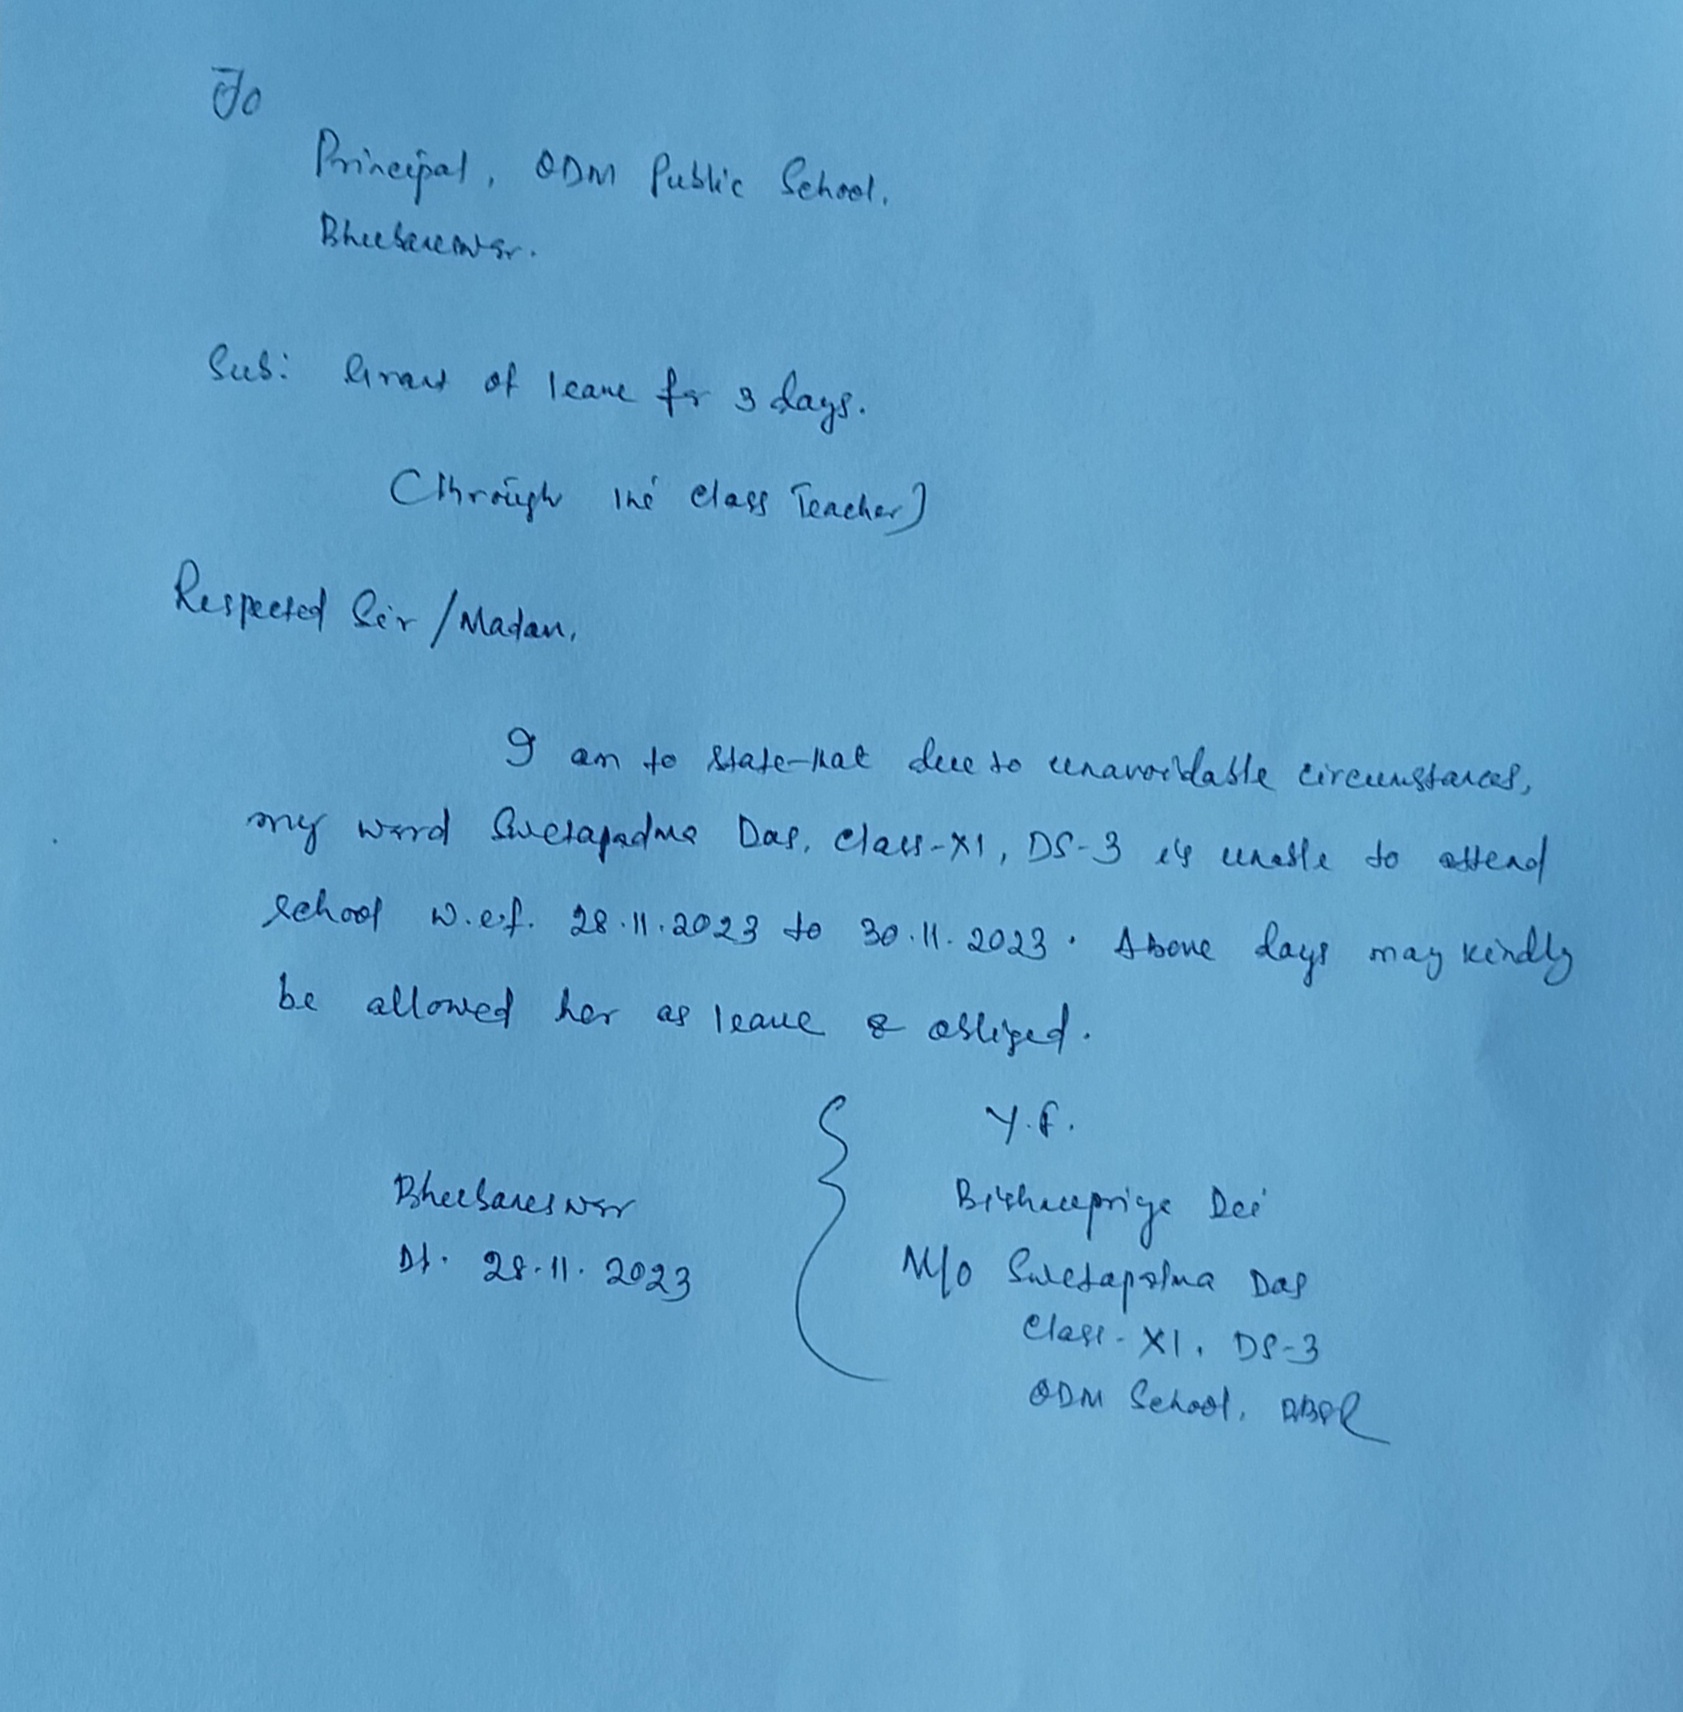 To
Principal, ODM Public School,
Bhubaneswar.
Sub: Grant of leave for 3 days.
(Through the Class Teacher)
Respected Sir/Madam,
I am to state that due to unavoidable circumstances,
my ward Swetapadma Das, Class-XI, DS-3 is unable to attend
school w.e.f. 28.11.2023 to 30.11.2023. Above days may kindly
be allowed her as leave & obliged.
Y.f.
Bhubaneswar
Dt. 28.11.2023
Bishnupriya Dei
M/o Swetapadma Das
Class-XI, DS-3
ODM School, BBSR